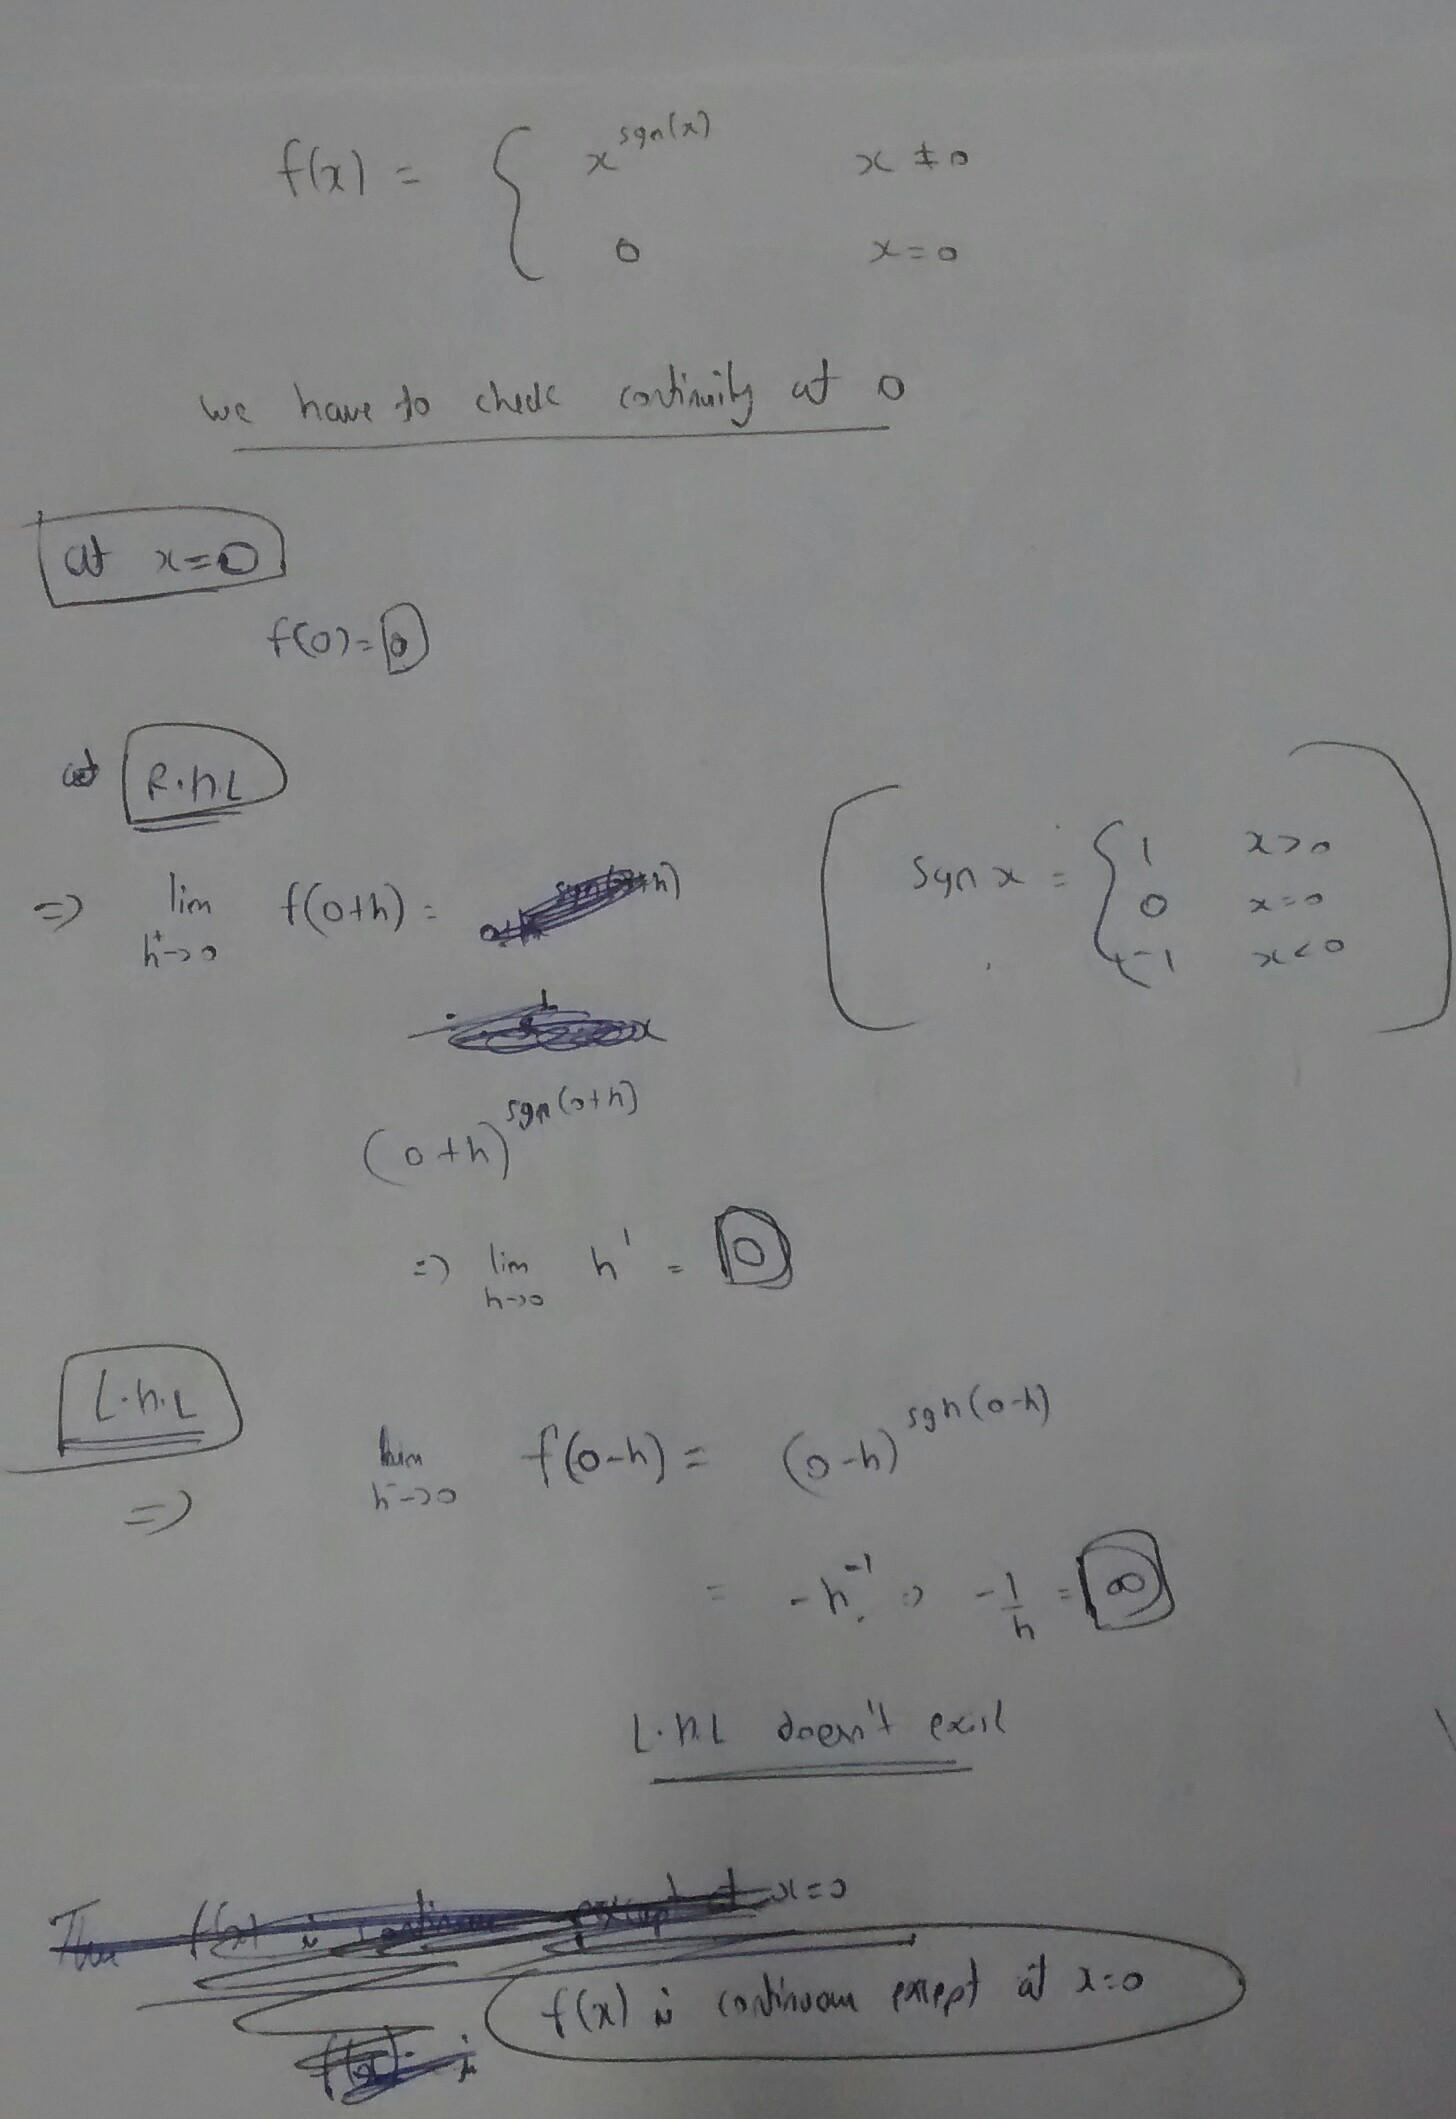 f(x) = { x^sgn(x) x ≠ 0
0 x=0
we have to check continuity at 0
at x=0
f(0)=0
at R.h.L
=> lim h⁺->0 f(0+h) =
Sgn x = { 1 x>0
0 x=0
-1 x<0
(0+h)^sgn(0+h)
=> lim h->0 h¹ = 0
L.h.L
=> lim h⁻->0 f(0-h) = (0-h)^sgn(0-h)
= -h⁻¹ => -1/h = ∞
L.h.L doesn't exist
f(x) is continuous except at x=0